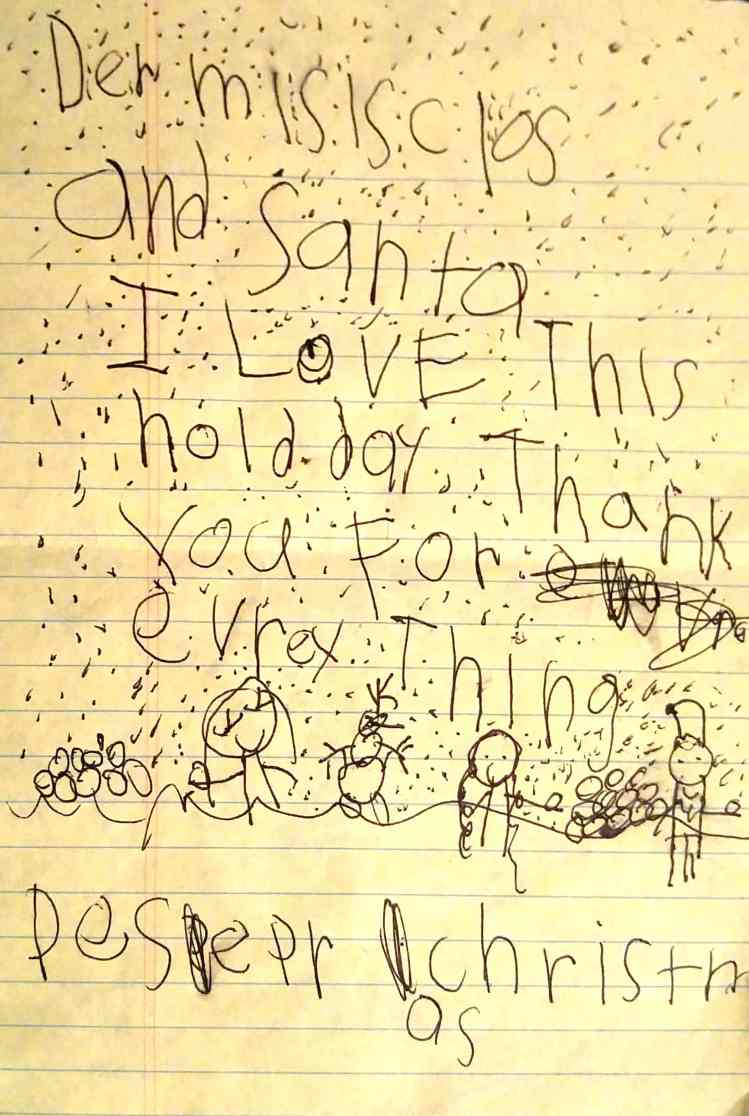 Der misisclos
and Santa
I LOVE This
holdday Thank
you For
evrey Thing
christm
as